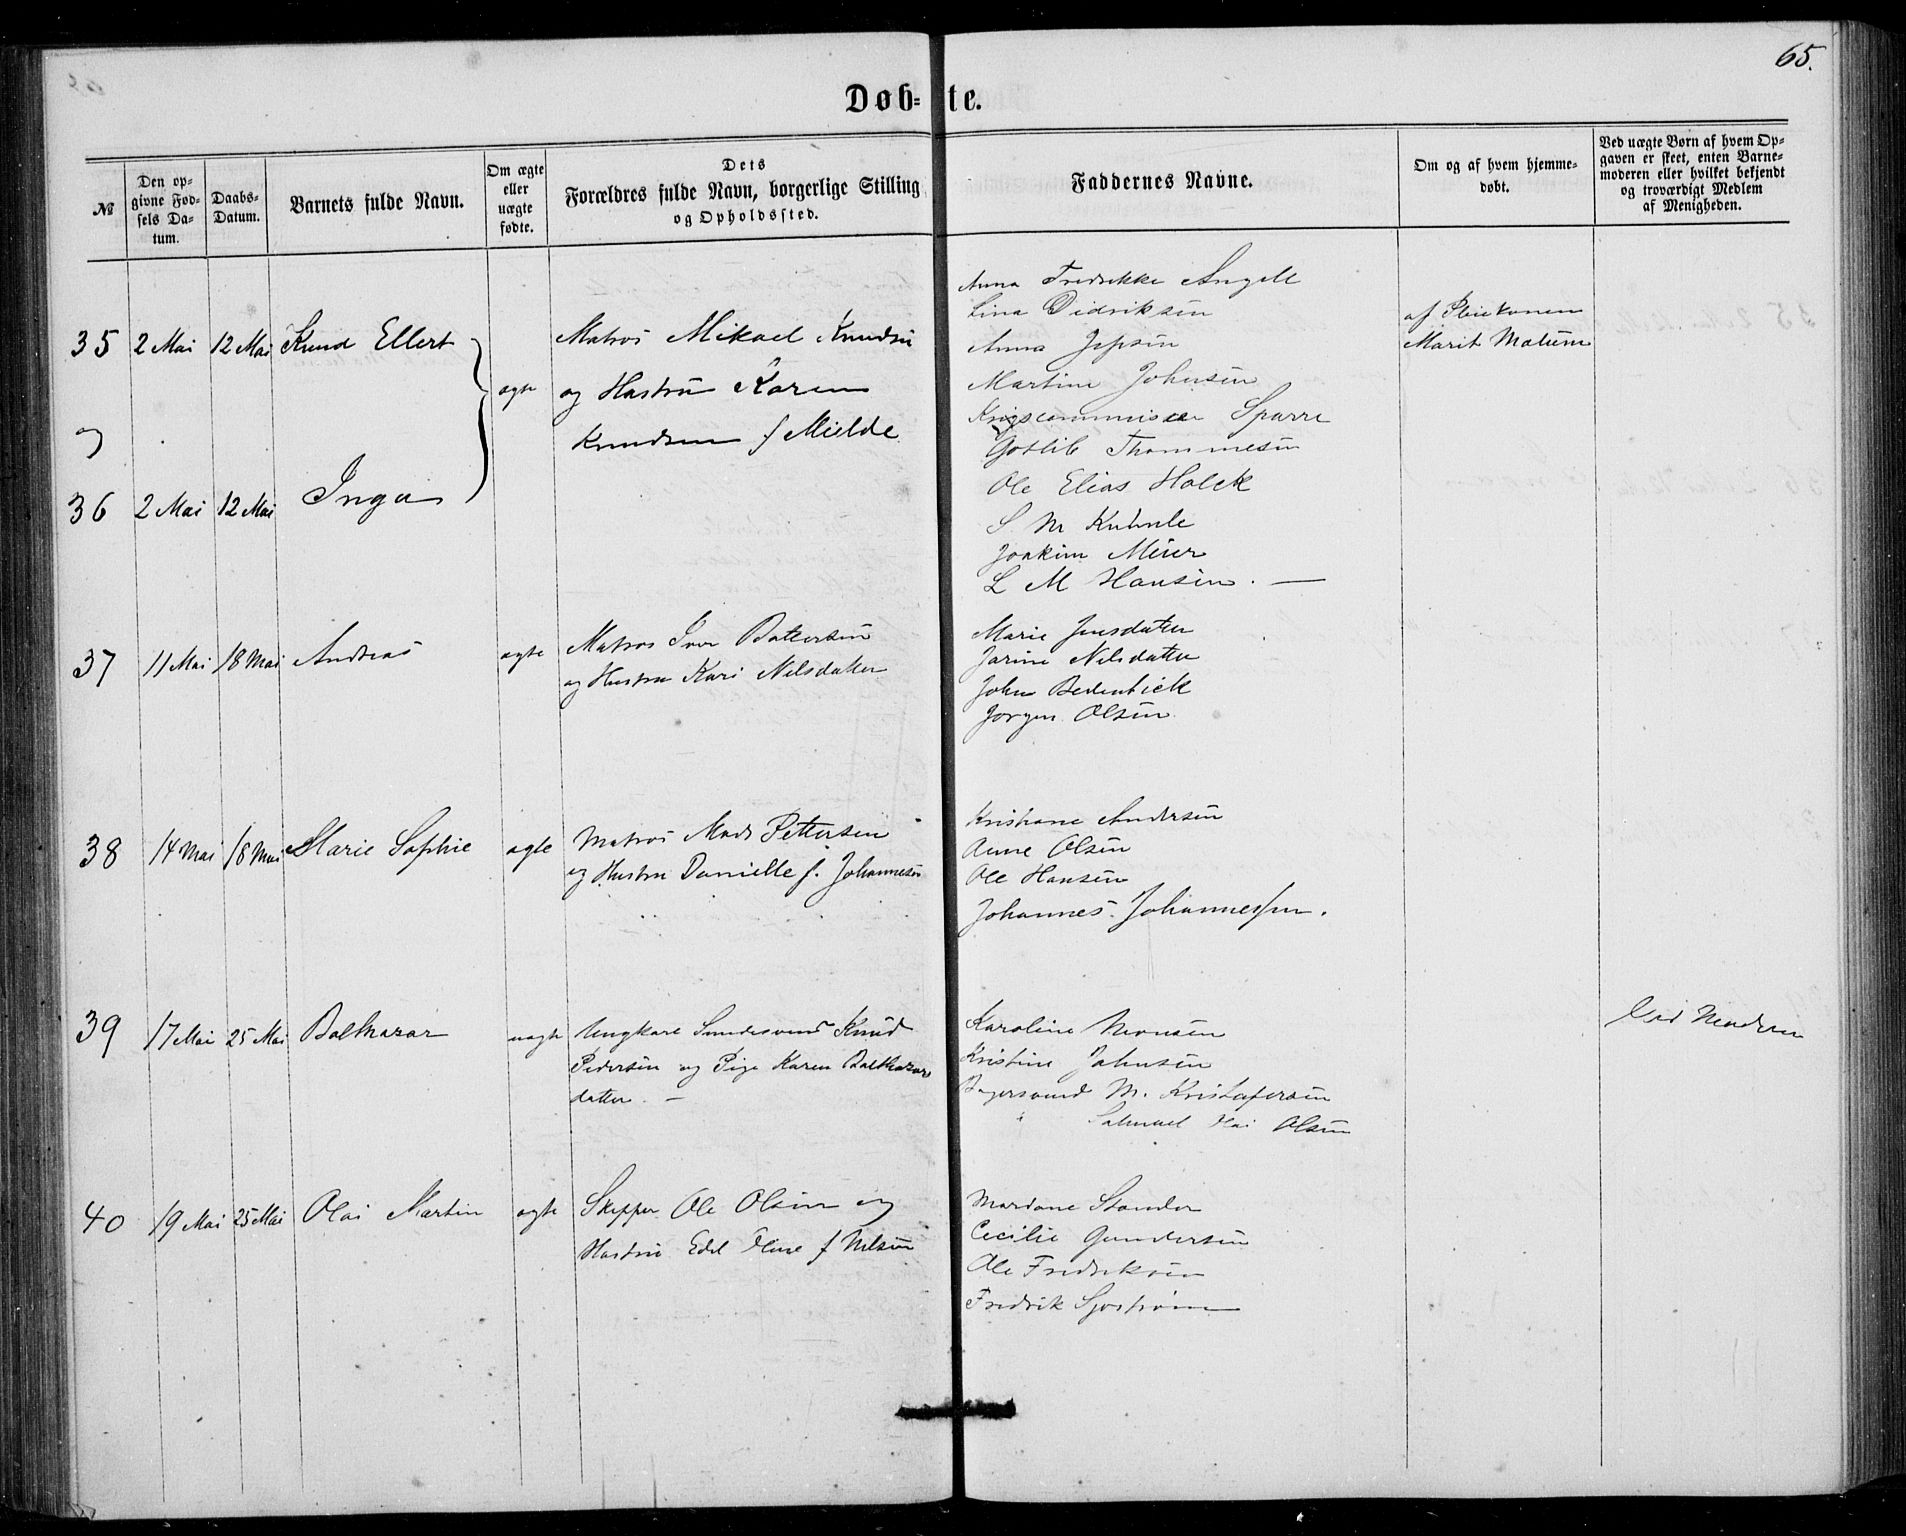 65.
Døb-te.
№
Den op-
givne Fød-
sels Da-
tum.
Daabs-
Datum.
Barnets fulde Navn.
Om ægte
eller
uægte
fødte.
Dets
Forældres fulde Navn, borgerlige Stilling
og Opholdssted.
Faddernes Navne.
Om og af hvem hjemme-
døbt.
Ved uægte Børn af hvem Op-
gaven er skeet, enten Barne-
moderen eller hvilket bekjendt
og troværdigt Medlem
af Menigheden.
35 2 Mai 12 Mai Knud Ellert
og
36 2 Mai 12 Mai Inga
ægte
Matros Mikael Knudsen
og Hustru Karen
Knudsen f Mielde
Anna Fredrikke Angell
Lina Didriksen
Anna Jepsen
Martine Johnsen
Krigscommissær Sparre
Gotlib Thommesen
Ole Elias Holck
S. M Kuhnle
Joakim Meier
L M Hansen. —
af
Marit
37 11 Mai 18 Mai Andreas ægte
Matros Iver
og Hustru Kari Nilsdatter
Marie Jensdatter
Nilsdatter
John
Jørgen Olsen
38 14 Mai 18 Mai Marie Sophie ægte
Matros Mads Pettersen
og Hustru Danielle f. Johannesen
Kristiane Andersen
Anne Olsen
Ole Hansen
Johannes Johannessen.
39 17 Mai 25 Mai Balthazar uægte
Ungkarl Smedesvend Knud
Pedersen og Pige Karen Balthazar
datter. —
Karoline Monsen
Kristine Johnsen
Bagersvend M. Kristofersen
" Samuel Olsen
40 19 Mai 25 Mai Olai Martin ægte
Skipper Ole Olsen og
Hustru Edel Oline f Nilsen
Mardone Stander
Cecilie Gundersen
Ole Fredriksen
Fredrik Sjøstrøm